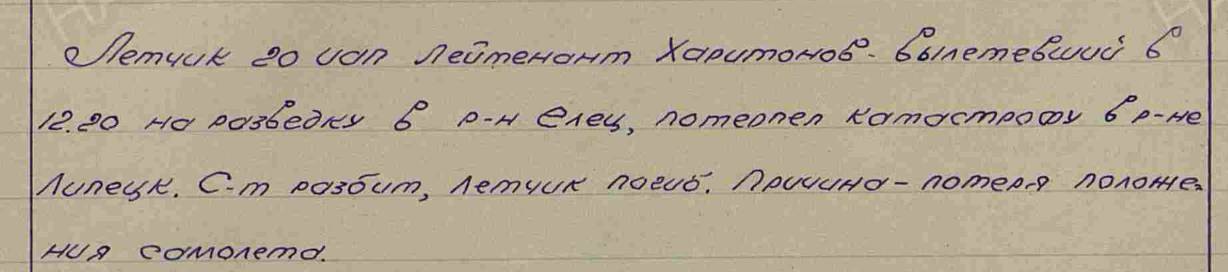 Летчик 20 иап лейтенант Харитонов - вылетевший в
12.20 на разведку в р-н Елец, потерпел катастрофу в р-не
Липецк. С-т разбит, летчик погиб. Причина - потеря положе-
ния самолета.